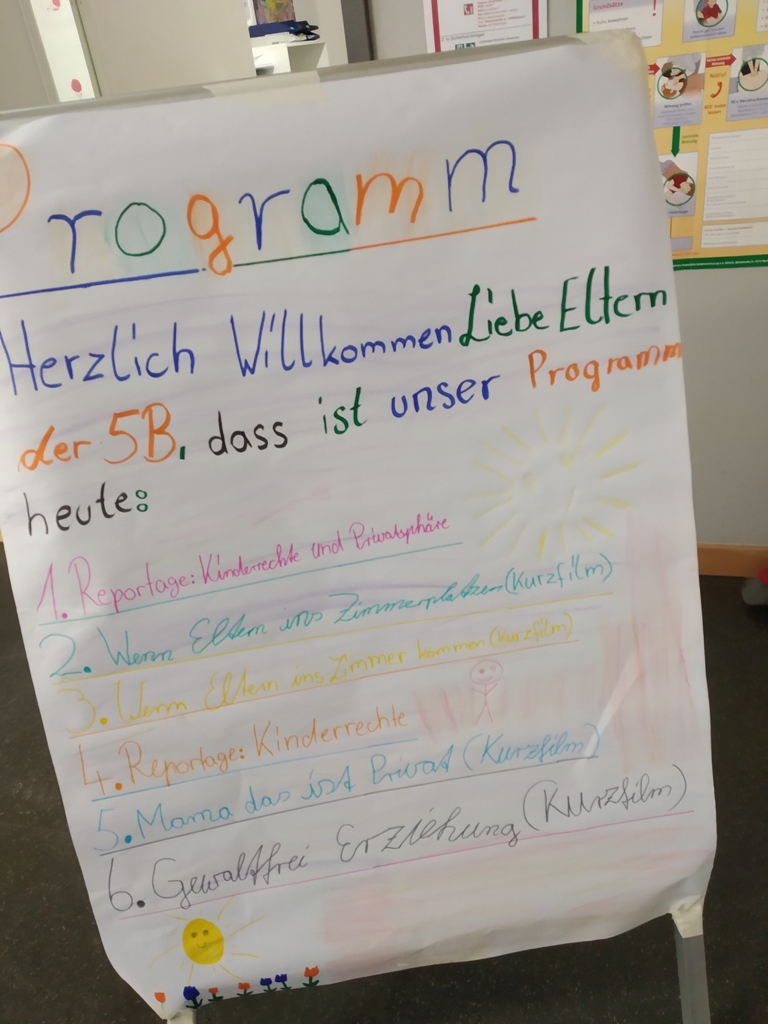 Programm
Herzlich Willkommen Liebe Eltern
der 5B, dass ist unser Programm
heute:
1. Reportage: Kinderrechte und Privatsphäre
2. Wenn Eltern ins Zimmerplatzen (Kurzfilm)
3. Wenn Eltern ins Zimmer kommen (Kurzfilm)
4. Reportage: Kinderrechte
5. Mama das ist Privat (Kurzfilm)
6. Gewaltfrei Erziehung (Kurzfilm)